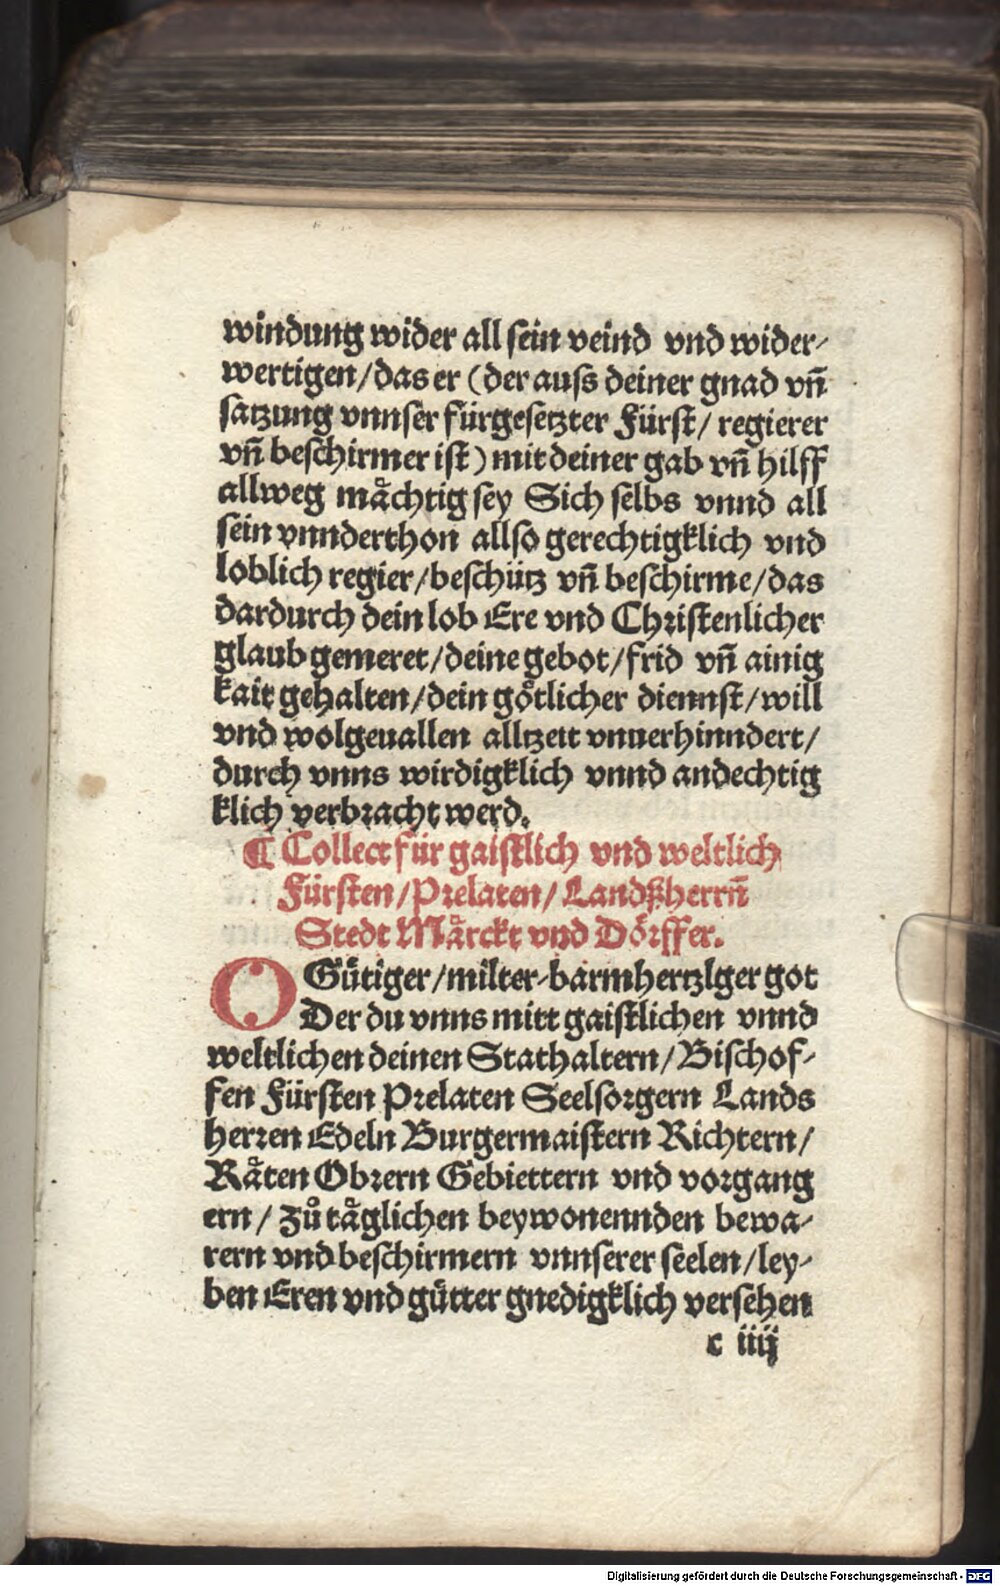 windung wider all sein veind vnd wider⸗
wertigen/das er (der auſs deiner gnad vn̄
satzung vnnser fürgesetzter Fürst/ regierer
vn̄ beschirmer ist) mit deiner gab vn̄ hilff
allweg måchtig sey Sich selbs vnnd all
sein vnnderthon allso gerechtigklich vnd
loblich regier/beschütz vn̄ beschirme/das
dardurch dein lob Ere vnd Christenlicher
glaub gemeret/deine gebot/frid vn̄ ainig
kait gehalten/dein gőtlicher diennst/will
vnd wolgeuallen alltzeit vnuerhinndert/
durch vnns wirdigklich vnnd andechtig
klich verbracht werd.
¶ Collect für gaistlich vnd weltlich
Fürsten/Prelaten/Landßherrn̄
Stedt Mårckt vnd Dőrffer.
O Gütiger/milter⸗barmhertzlger got
Der du vnns mitt gaistlichen vnnd
weltlichen deinen Stathaltern/Bischof⸗
fen Fürsten Prelaten Seelsorgern Lands
herren Edeln Burgermaistern Richtern/
Råten Obrern Gebiettern vnd vorgang
ern/ Zů tåglichen beywonennden bewa⸗
rern vnd beschirmern vnnserer seelen/ley⸗
ben Eren vnd gütter gnedigklich versehen
c iiij
Digitalisierung gefördert durch die Deutsche Forschungsgemeinschaft - DFG